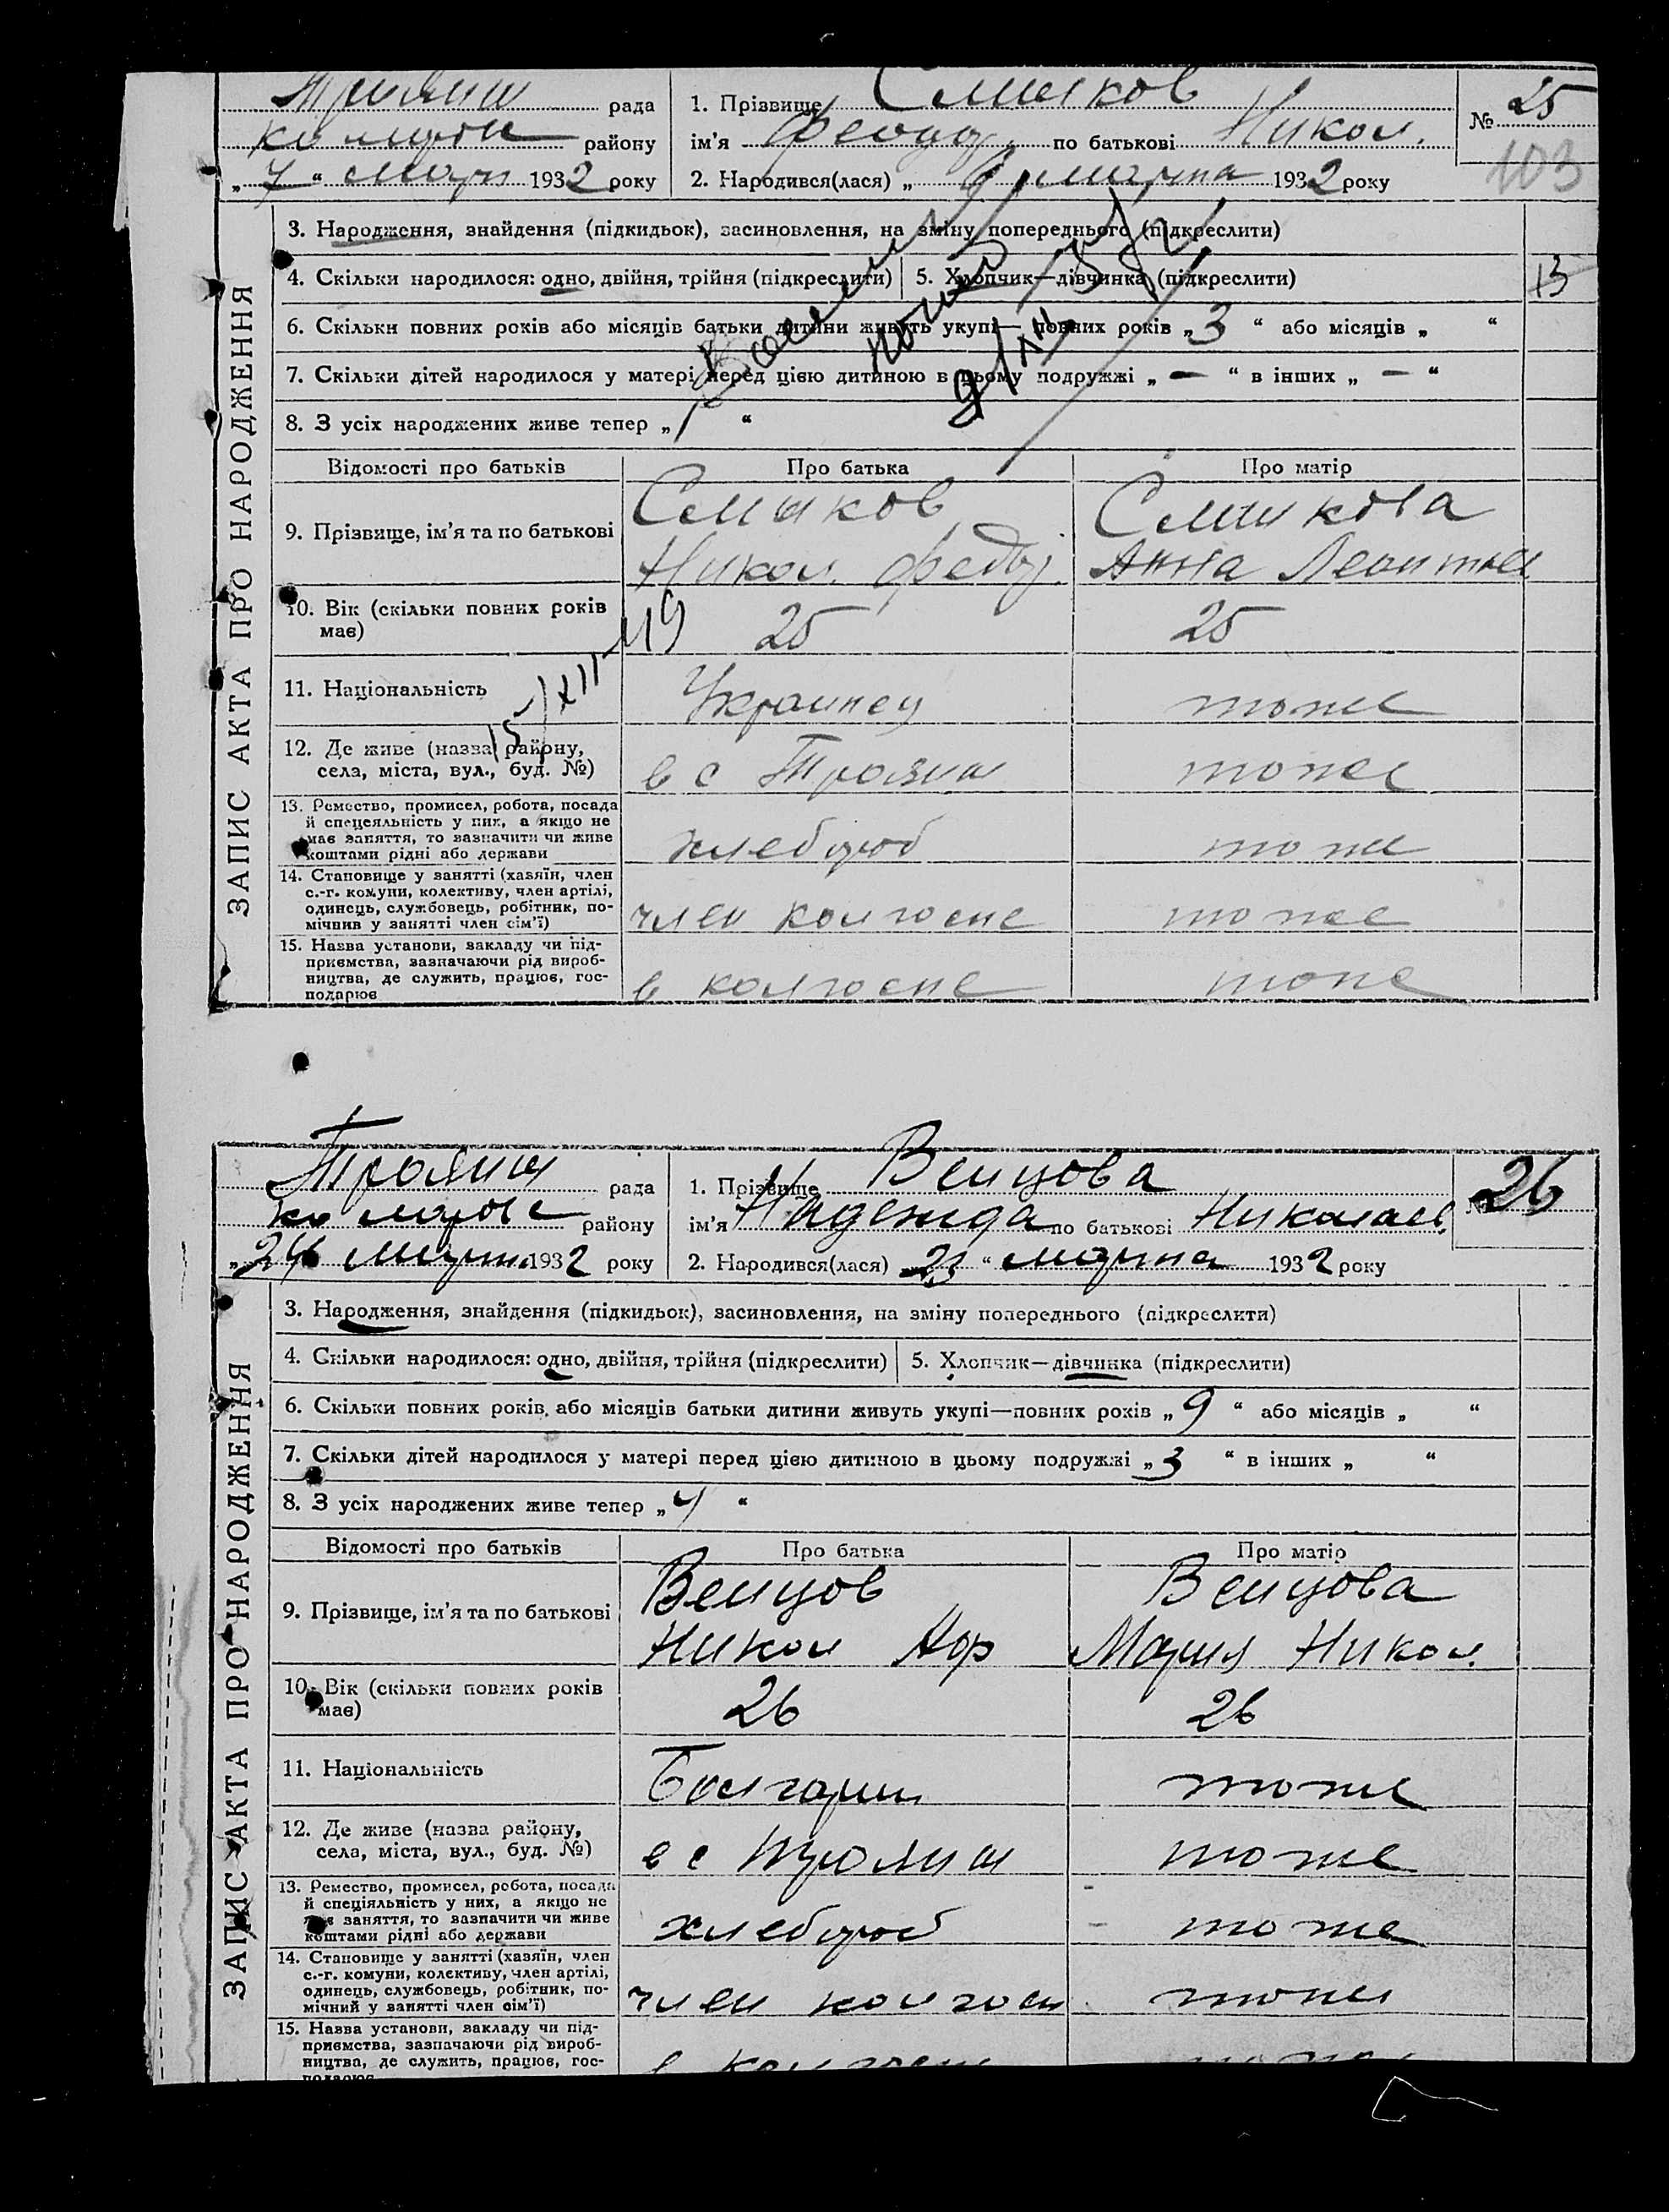 Троянш рада
района району
„7“ март 1932 року
1. Прізвище Смыков
ім'я Феодор по батькові Никол.
2. Народився(лася) „6 марта 1932 року
№ 25
103
ЗАПИС АКТА ПРО НАРОДЖЕННЯ
3. Народження, знайдення (підкидьок), засиновлення, на зміну попереднього (підкреслити)
4. Скільки народилося: одно, двійня, трійня (підкреслити) 5. Хлопчик—дівчинка (підкреслити)
13
6. Скільки повних років або місяців батьки дитини живуть укупі— повних років „3“ або місяців „ “
7. Скільки дітей народилося у матері перед цією дитиною в цьому подружжі „—“ в інших „—“
8. З усіх народжених живе тепер „1“
Відомості про батьків Про батька Про матір
9. Прізвище, ім'я та по батькові
Смыков
Никол. Федор
Смыкова
Анна Леонтьев
10. Вік (скільки повних років має) 25 25
15/XII-49
11. Національність Украинец тоже
12. Де живе (назва району,
села, міста, вул., буд. №) в с Троянш тоже
13. Ремество, промисел, робота, посада
й спецеяльність у них, а якщо не
має заняття, то зазначити чи живе
коштами рідні або держави хлебороб тоже
14. Становище у занятті (хазяїн, член
с.-г. комуни, колективу, член артілі,
одинець, службовець, робітник, по-
мічнив у занятті член сім'ї) член колгоспе тоже
15. Назва установи, закладу чи під-
приємства, зазначаючи рід вироб-
ництва, де служить, працює, гос-
подарює в колгоспе тоже
Троянш рада
району
„24“ март 1932 року
1. Прізвище Венцова
ім'я Надежда по батькові Николаев.
2. Народився(лася) „23“ марта 1932 року
№ 26
ЗАПИС АКТА ПРО НАРОДЖЕННЯ
3. Народження, знайдення (підкидьок), засиновлення, на зміну попереднього (підкреслити)
4. Скільки народилося: одно, двійня, трійня (підкреслити) 5. Хлопчик—дівчинка (підкреслити)
6. Скільки повних років або місяців батьки дитини живуть укупі—повних років „9“ або місяців „ “
7. Скільки дітей народилося у матері перед цією дитиною в цьому подружжі „3“ в інших „ “
8. З усіх народжених живе тепер „4“
Відомості про батьків Про батька Про матір
9. Прізвище, ім'я та по батькові
Венцов
Никол
Венцова
Мария Никол.
10. Вік (скільки повних років має) 26 26
11. Національність Болгарин тоже
12. Де живе (назва району,
села, міста, вул., буд. №) в с Троянш тоже
13. Ремество, промисел, робота, посада
й спеціяльність у них, а якщо не
має заняття, то зазначити чи живе
коштами рідні або держави хлебороб тоже
14. Становище у занятті (хазяїн, член
с.-г. комуни, колективу, член артілі,
одинець, службовець, робітник, по-
мічний у занятті член сім'ї) член колгосп тоже
15. Назва установи, закладу чи під-
приємства, зазначаючи рід вироб-
ництва, де служить, працює, гос-
подарює